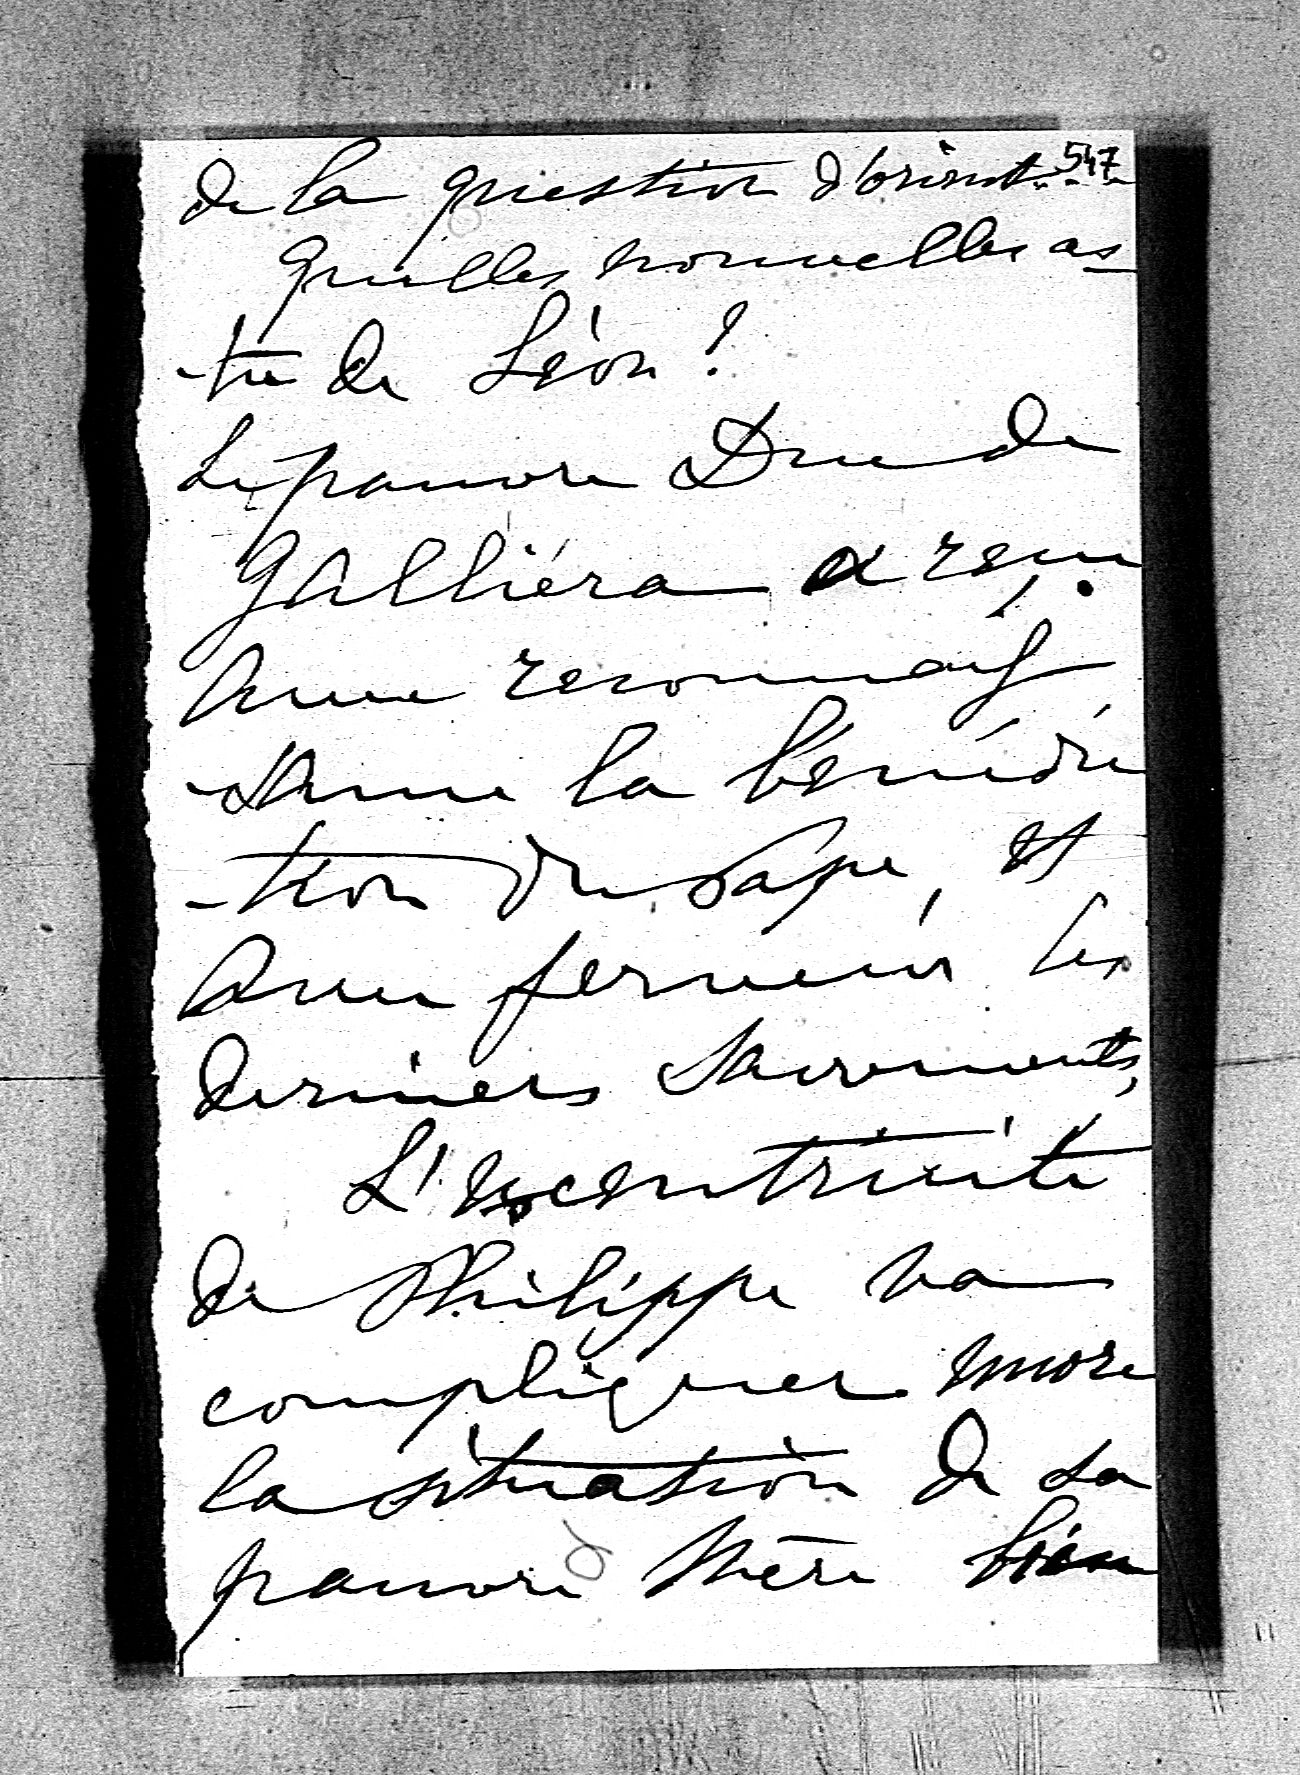 de la question d'orient... 547
Quelles nouvelles as
-tu de Léon ?
Le pauvre Duc de
Galliéra a reçu
avec reconnais
-sance la bénédic
-tion du Pape, et
avec ferveur les
derniers Sacrements,
L'excentricité
de Philippe va
compliquer encore
la situation de sa
pauvre Mère bien